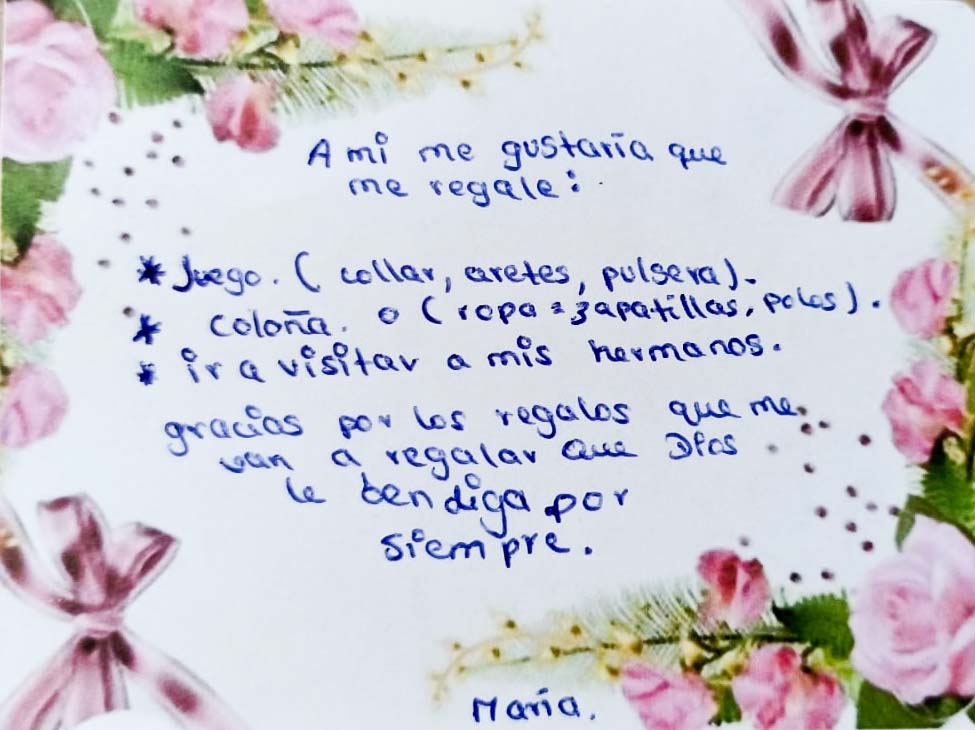 A mi me gustaría que
me regale:
* Juego. ( collar, aretes, pulsera).
* coloña. o ( ropa = zapatillas, polos).
* ir a visitar a mis hermanos.
gracias por los regalos que me
van a regalar que Dios
le bendiga por
siempre.
María.